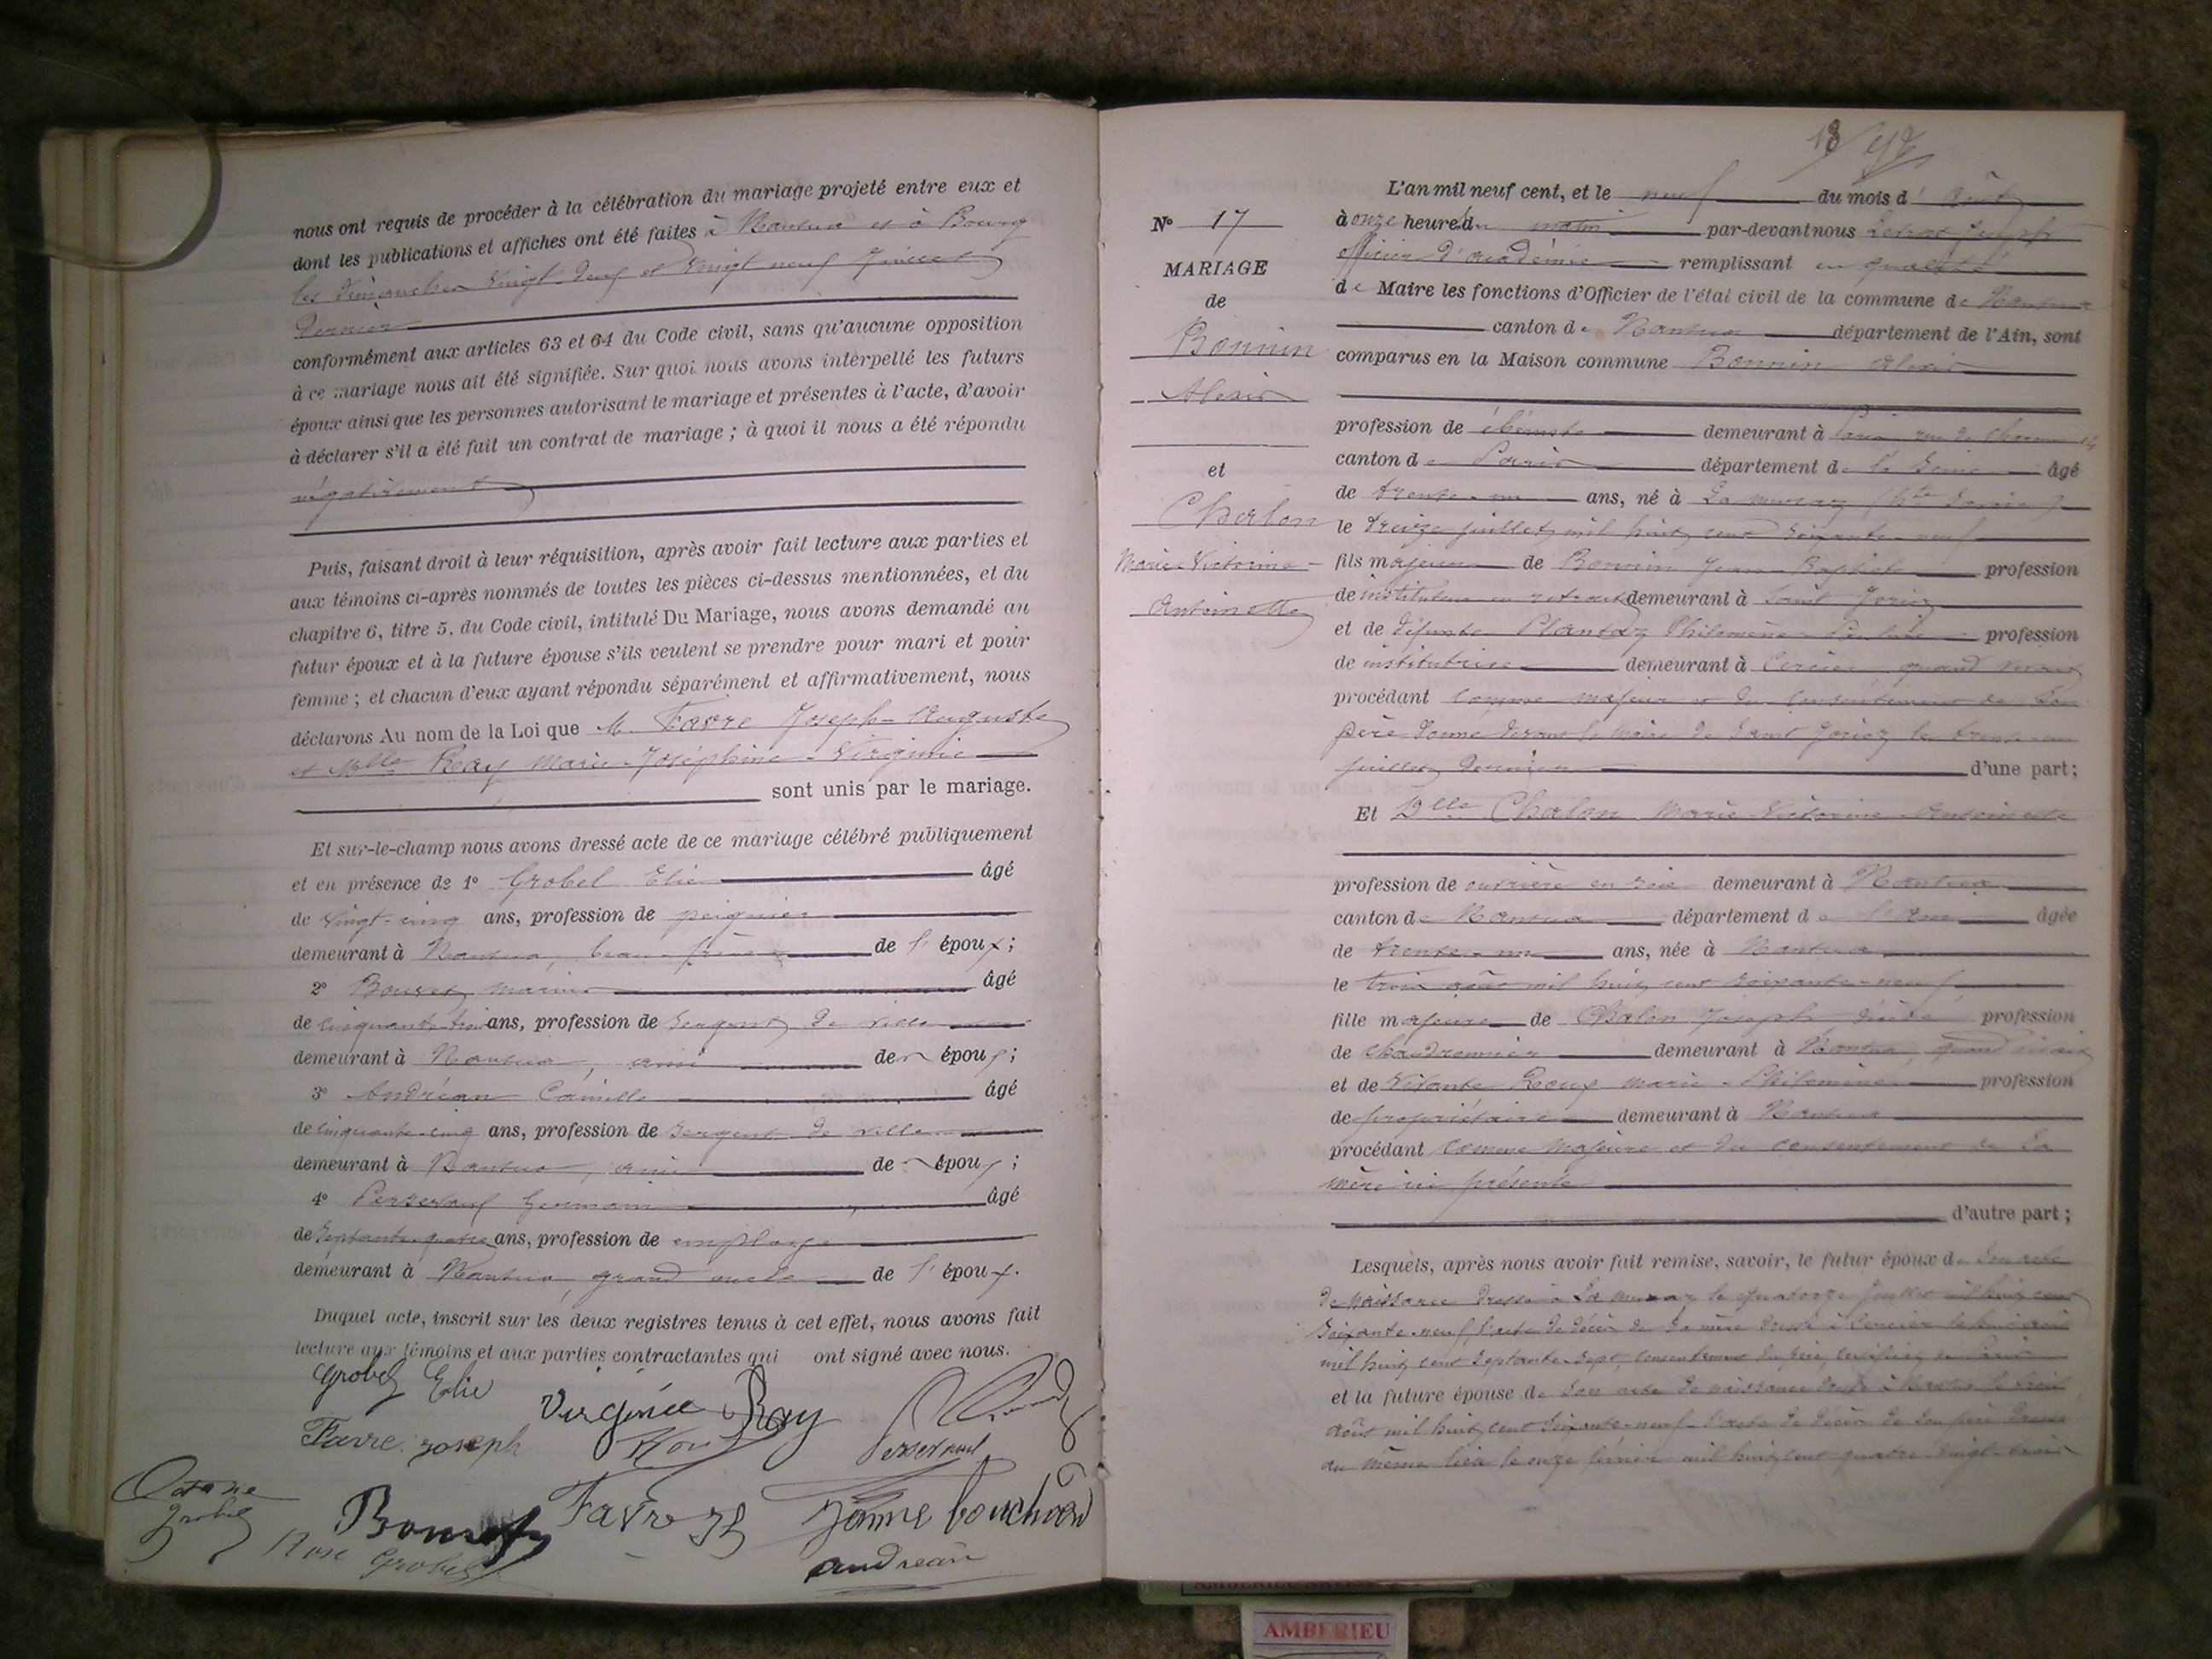 nous ont requis de procéder à la célébration du mariage projeté entre eux et
dont les publications et affiches ont été faites à Nantua et à Bourg
les dimanches vingt-deux et vingt neuf Juillet
dernier
conformément aux articles 63 et 64 du Code civil, sans qu'aucune opposition
à ce mariage nous ait été signifiée. Sur quoi nous avons interpellé les futurs
époux ainsi que les personnes autorisant le mariage et présentes à l'acte, d'avoir
à déclarer s'il a été fait un contrat de mariage ; à quoi il nous a été répondu
négativement
Puis, faisant droit à leur réquisition, après avoir fait lecture aux parties et
aux témoins ci-après nommés de toutes les pièces ci-dessus mentionnées, et du
chapitre 6, titre 5, du Code civil, intitulé Du Mariage, nous avons demandé au
futur époux et à la future épouse s'ils veulent se prendre pour mari et pour
femme ; et chacun d'eux ayant répondu séparément et affirmativement, nous
déclarons Au nom de la Loi que M. Favre Joseph-Auguste
et Melle Ray Marie-Joséphine-Virginie
sont unis par le mariage.
Et sur-le-champ nous avons dressé acte de ce mariage célébré publiquement
et en présence de 1° Grobel Elie âgé
de vingt-cinq ans, profession de peignier
demeurant à Nantua, beau-frère de l'époux ;
2° Bouvet Marius âgé
de cinquante-trois ans, profession de sergent de ville
demeurant à Nantua, ami de époux ;
3° Andréan Camille âgé
de cinquante-cinq ans, profession de sergent de ville
demeurant à Nantua, ami de époux ;
4° Perseroul Germain âgé
de septante-quatre ans, profession de employé
demeurant à Nantua, grand oncle de l'époux.
Duquel acte, inscrit sur les deux registres tenus à cet effet, nous avons fait
lecture aux témoins et aux parties contractantes qui ont signé avec nous.
Grobel Elie Virginie Ray
Favre Joseph
Grobel
Favre Jh
Rose Grobel
andréan
18
N° 17
MARIAGE
de
Bonnin
Alexis
et
Chalon
Marie-Victorine-
Antoinette
L'an mil neuf cent, et le neuf du mois d'Août
à onze heures du matin par-devant nous Joseph
officier d'académie remplissant en qualité
de Maire les fonctions d'Officier de l'état civil de la commune de Nantua
canton de Nantua département de l'Ain, sont
comparus en la Maison commune Bonnin Alexis
profession de ébéniste demeurant à Paris rue de
canton de Paris département de la Seine âgé
de trente-un ans, né à La Muraz (Hte Savoie)
le treize juillet mil huit cent soixante-neuf
fils majeur de Bonnin Jean-Baptiste profession
de instituteur en retraite demeurant à Saint Jorioz
et de défunte Plantaz Philomène profession
de institutrice demeurant à Cercier, quand vivait
procédant comme majeur et du consentement de son
père donné devant le maire de Saint Jorioz le trente-un
juillet dernier d'une part ;
Et Dlle Chalon Marie-Victorine-Antoinette
profession de ouvrière en soie demeurant à Nantua
canton de Nantua département de l'Ain âgée
de trente-un ans, née à Nantua
le trois août mil huit cent soixante-neuf
fille majeure de Chalon Joseph décédé profession
de chaudronnier demeurant à Nantua, quand vivait
et de vivante Roux Marie-Philomène profession
de propriétaire demeurant à Nantua
procédant comme majeure et du consentement de sa
mère ici présente
d'autre part ;
Lesquels, après nous avoir fait remise, savoir, le futur époux de son acte
de naissance dressé à La Muraz le quatorze juillet mil huit cent
soixante-neuf, l'acte de décès de sa mère dressé à Cercier le
mil huit cent septante-sept, consentement du père, certificat de Paris
et la future épouse de son acte de naissance dressé à Nantua le trois
août mil huit cent soixante-neuf, l'acte de décès de son père dressé
au même lieu le onze février mil huit cent quatre-vingt-trois
AMBERIEU